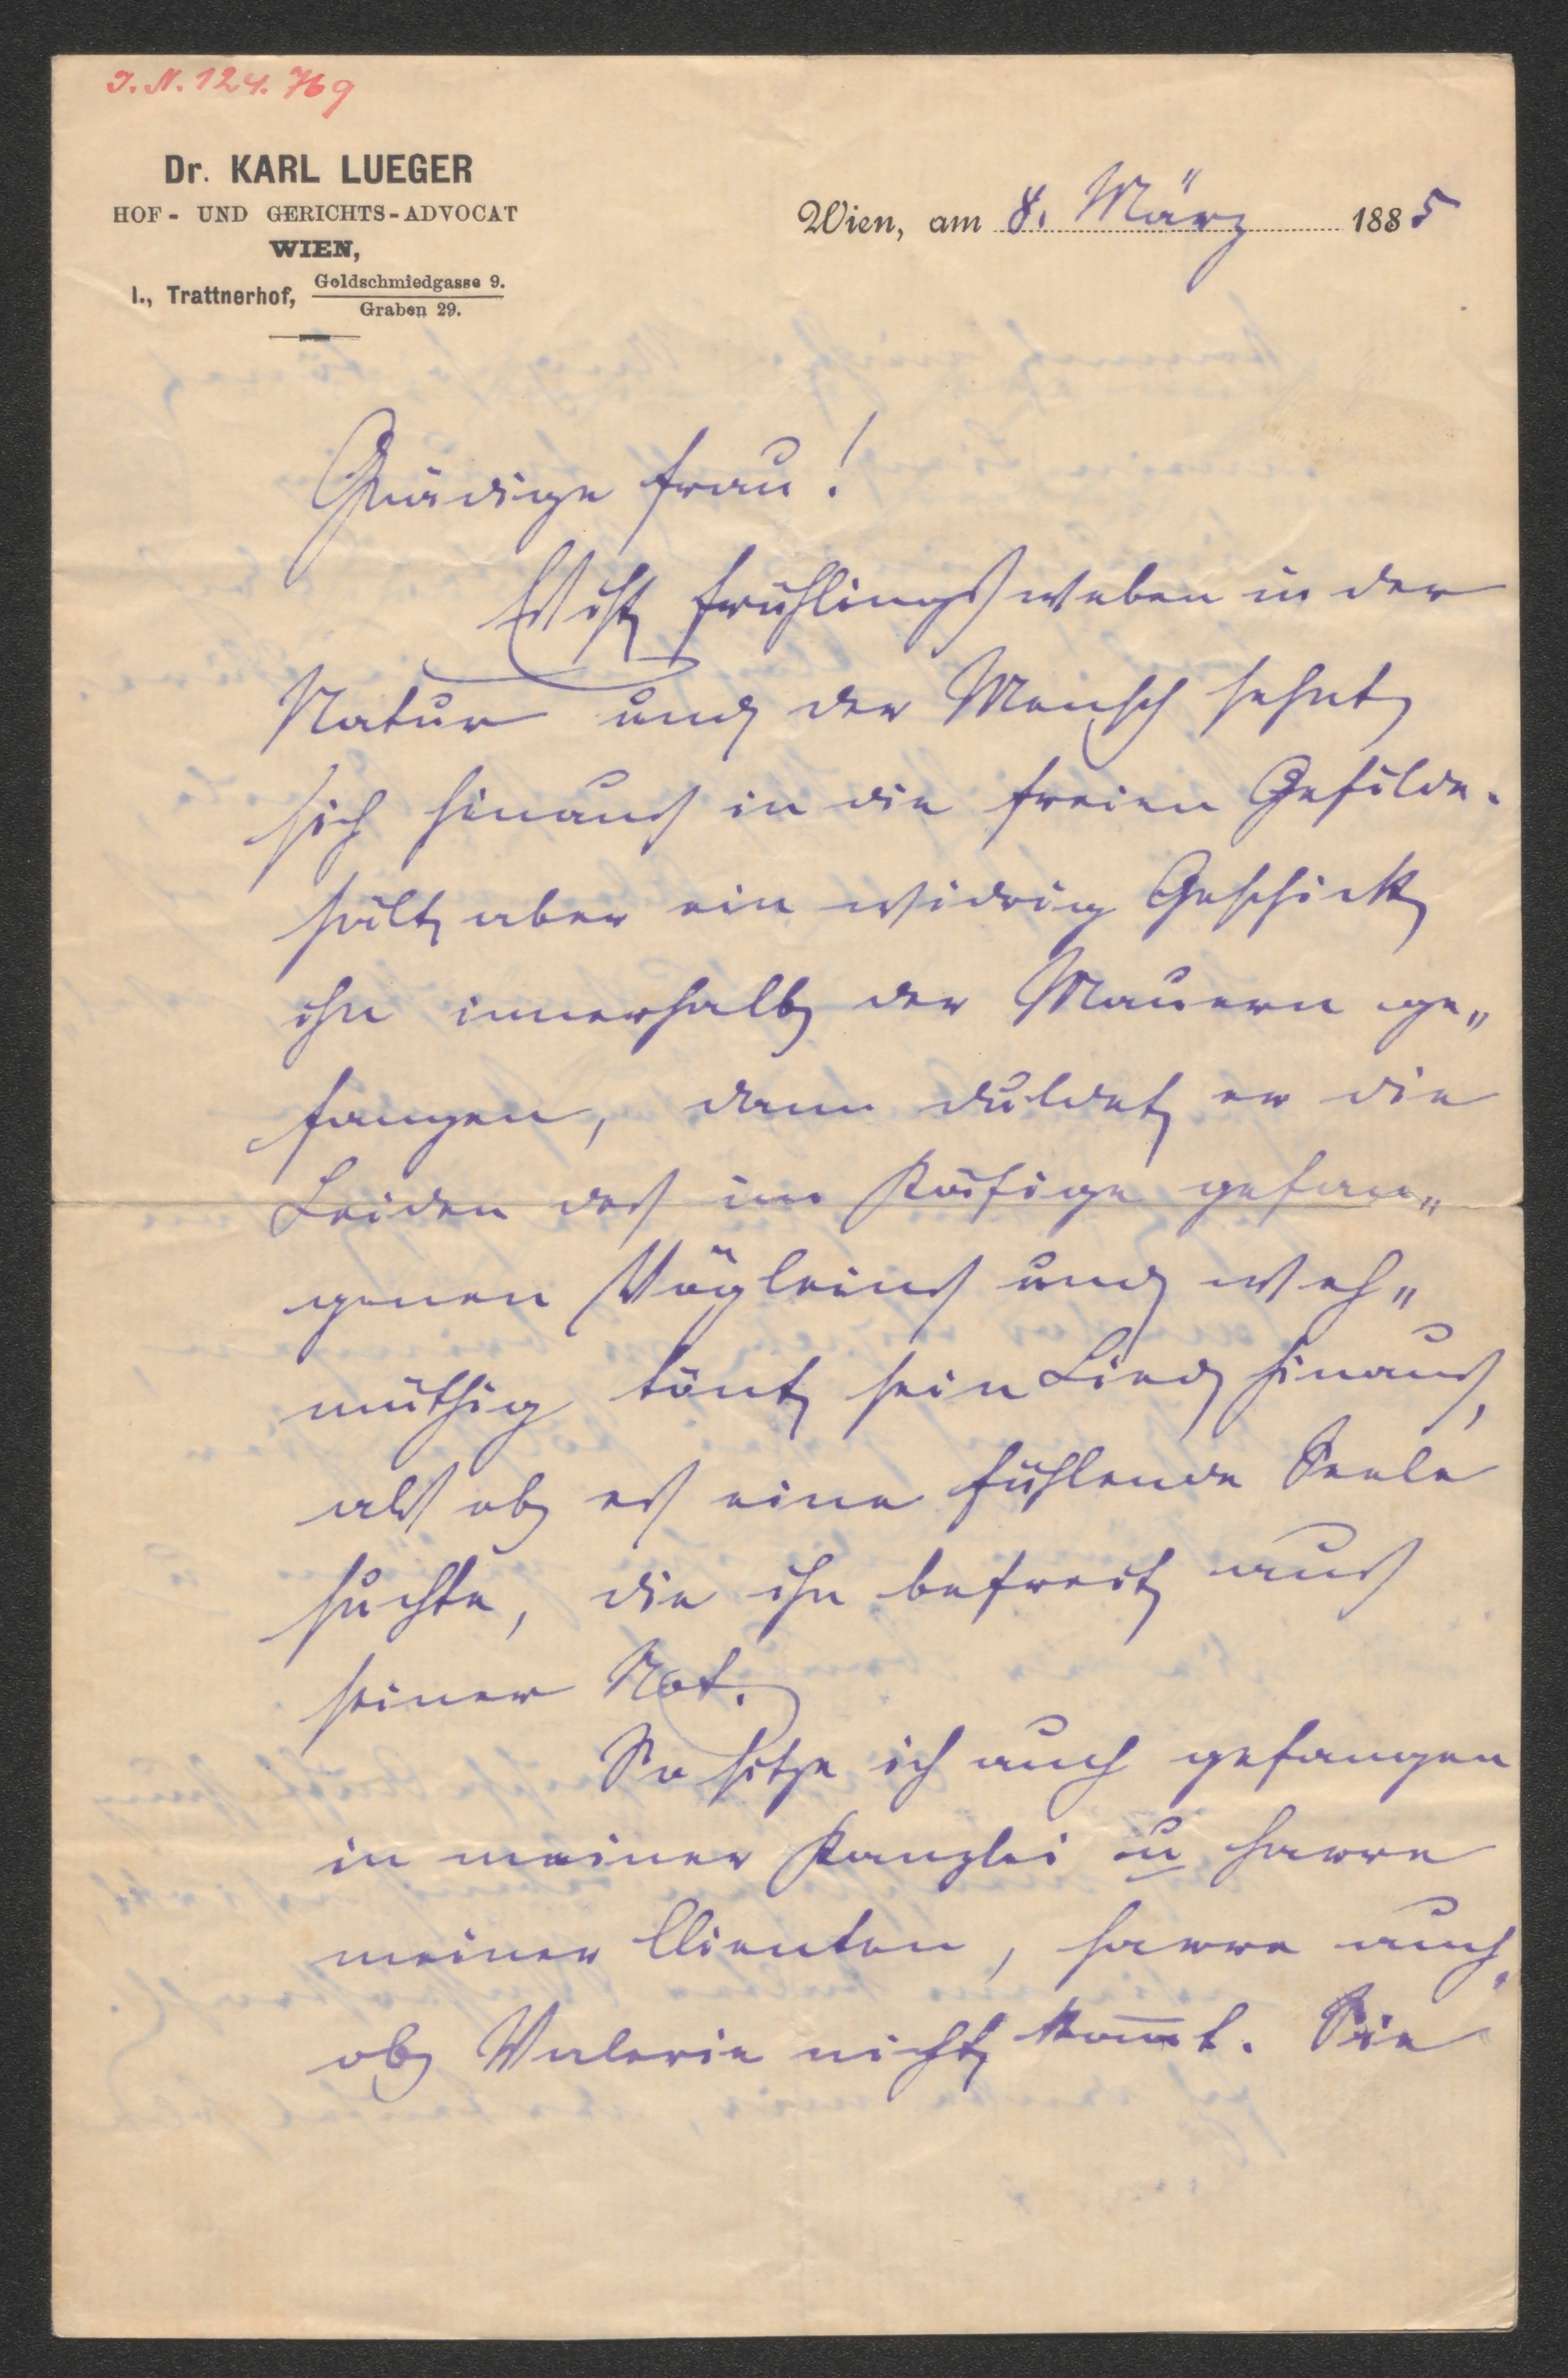 J. N. 124.769
Dr. KARL LUEGER
HOF- UND GERICHTS-ADVOCAT
WIEN,
I., Trattnerhof, Goldschmiedgasse 9.
Graben 29.
Wien, am 8. März 1885
Gnädige Frau!
Es ist Frühlingsweben in der
Natur und der Mensch sehnt
sich hinaus in die freien Gefilde.
hält aber ein widrig Geschick
ihn innerhalb der Mauern ge„
fangen, dann duldet er die
Leiden des im Käfige gefan„
genen Vögleins und weh„
müthig tönt sein Lied hinaus,
als ob es eine fühlende Seele
suchte, die ihn befreit aus
seiner Not.
So sitze ich auch gefangen
in meiner Kanzlei u harre
meiner Clienten, harre auch,
ob Valerie nicht kom̅t. Sie